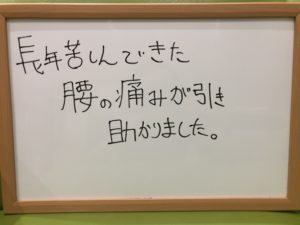 長年苦しんできた
腰の痛みが引き
助かりました。